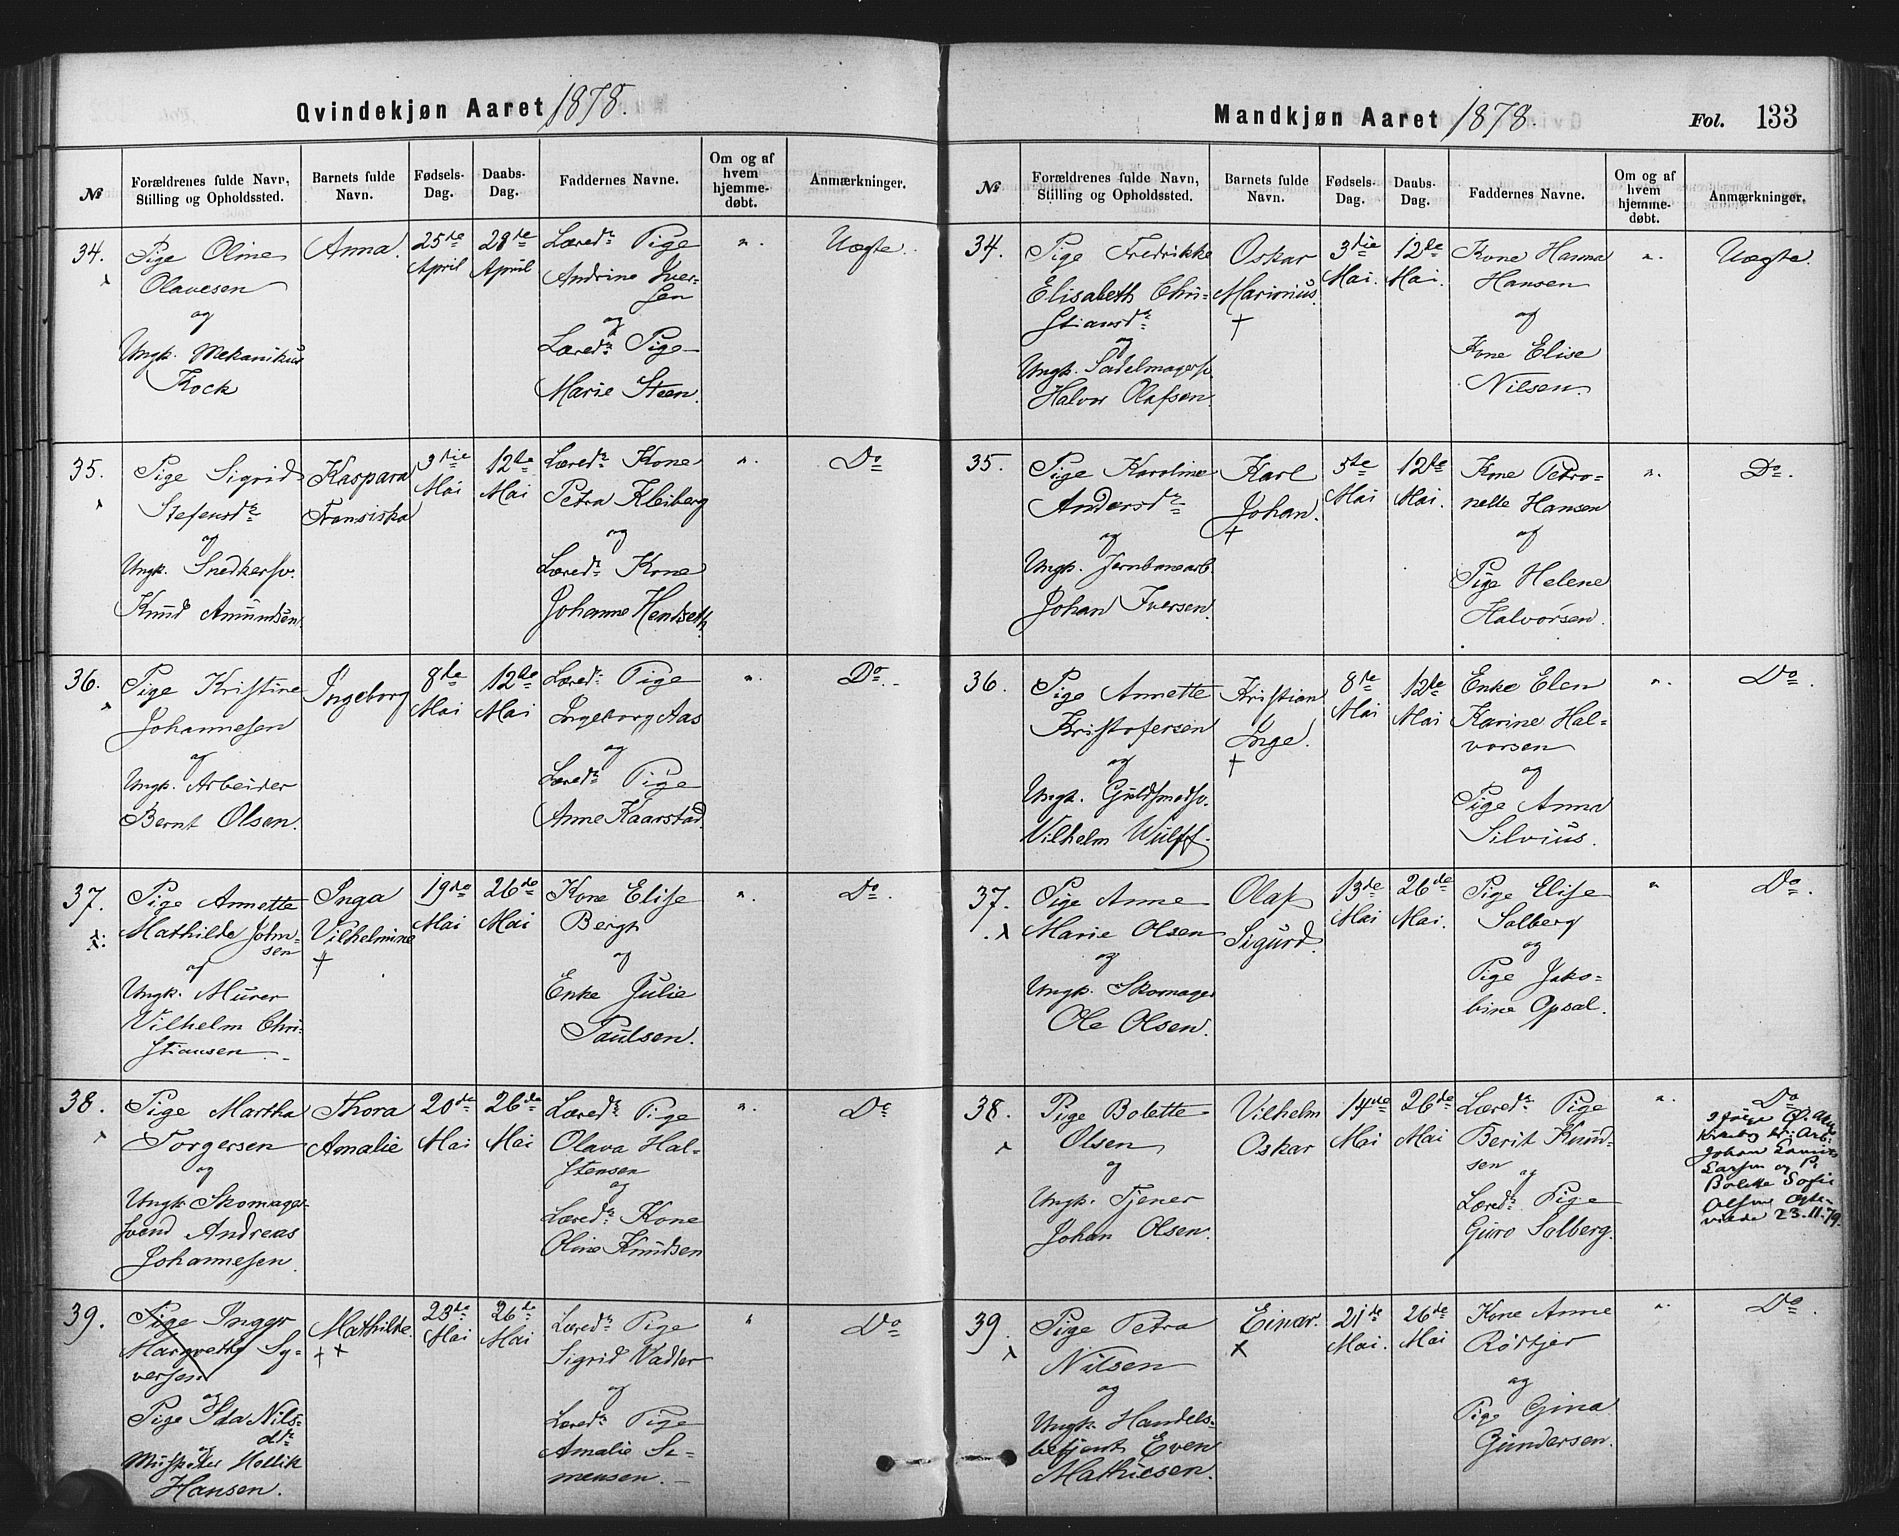 Qvindekjøn Aaret 1878.
№
Forældrenes fulde Navn, Stilling og Opholdssted.
Barnets fulde Navn.
Fødsels-Dag.
Daabs-Dag.
Faddernes Navne.
Om og af hvem hjemme-døbt.
Anmærkninger.
34.
Pige Oline
Olavesen
og
Ungk. Mekanikus
Kock
Anna.
25de
April
28de
April
Læred: Pige
Andrine Iver-
sen
og
Læred: Pige
Marie Steen.
".
Uægte.
35.
Pige Sigrid
Stefensd:
og
Ungk. Snedkersv.
Knud Amundsen.
Kaspara
Fransiska
3die
Mai
12te
Mai
Læred: Kone
Petra Kleiberg
og
Læred: Kone
Johanne Hendseth.
".
Do
36.
Pige Kristine
Johannesen
og
Ungk. Arbeider
Bernt Olsen.
Ingeborg
8de
Mai
12te
Mai
Læred: Pige
Ingeborg Aas
og
Læred: Pige
Anne Kaarstad.
".
Do.
37.
Pige Annette
Mathilde John-
sen
og
Ungk. Murer
Vilhelm Chri-
stiansen.
Inga
Vilhelmine
†
19de
Mai
26de
Mai
Kone Elise
Bergh
og
Enke Julie
Paulsen.
".
Do.
38.
Pige Martha
Torgersen
og
Ungk. Skomager-
svend Andreas
Johannesen.
Thora
Amalie
20de
Mai
26de
Mai
Læred: Pige
Olava Hal-
stensen
og
Læred: Kone
Oline Knudsen
".
Do
39.
Pige Inger
Margrethe Sy-
versen
og
Pige Ida Nils-
dtr
og
Hansen.
Mathilde.
† x
23de
Mai
26de
Mai
Læred: Pige
Sigrid Vadler
og
Læred: Pige
Amalie Si-
mensen.
"
Do
Mandkjøn Aaret 1878.
Fol. 133
№
Forældrenes fulde Navn, Stilling og Opholdssted.
Barnets fulde Navn.
Fødsels-Dag.
Daabs-Dag.
Faddernes Navne.
Om og af hvem hjemme-døbt.
Anmærkninger.
34.
Pige Fredrikke
Elisabeth Chri-
stiansd:
og
Ungk. Sadelmagersv.
Halvor Olafsen.
Oskar
Marinius.
†
3die
Mai.
12te
Mai.
Kone Hanna
Hansen
og
Kone Elise
Nilsen.
".
Uægte.
35.
Pige Karoline
Andersd:
og
Ungk. Jernbanearb.
Johan Iversen.
Karl
Johan.
†
5te
Mai
12te
Mai.
Kone Petro-
nelle Hansen
og
Pige Helene
Halvorsen.
".
Do.
36.
Pige Annette
Kristofersen
og
Ungk. Guldsmedsv.
Vilhelm Wulff.
Kristian
Inge.
†
8de
Mai
12te
Mai
Enke Elen
Karine Hal-
vorsen
og
Pige Anna
Silvius.
".
Do.
37.
Pige Anne
Marie Olsen
og
Ungk. Skomager
Ole Olsen.
Olaf
Sigurd.
13de
Mai
26de
Mai.
Pige Elise
Solberg
og
Pige Jako-
bine Opsal.
"
Do.
38.
Pige Bolette
Olsen
og
Ungk. Tjener
Johan Olsen.
Vilhelm
Oskar
14de
Mai
26de
Mai
Læred: Pige
Berit Knud-
sen
og
Læred: Pige
Guro Solberg.
".
Do
Johan
Larsen og Pi.
Bolette Sofie
Olsen ægte-
viede 23.11.79.
39.
Pige Petra
Nilsen
og
Ungk. Handels-
betjent Even
Mathiesen.
Einar.
x
21de
Mai.
26de
Mai
Kone Anne
og
Pige Gina
Gundersen.
".
Do.